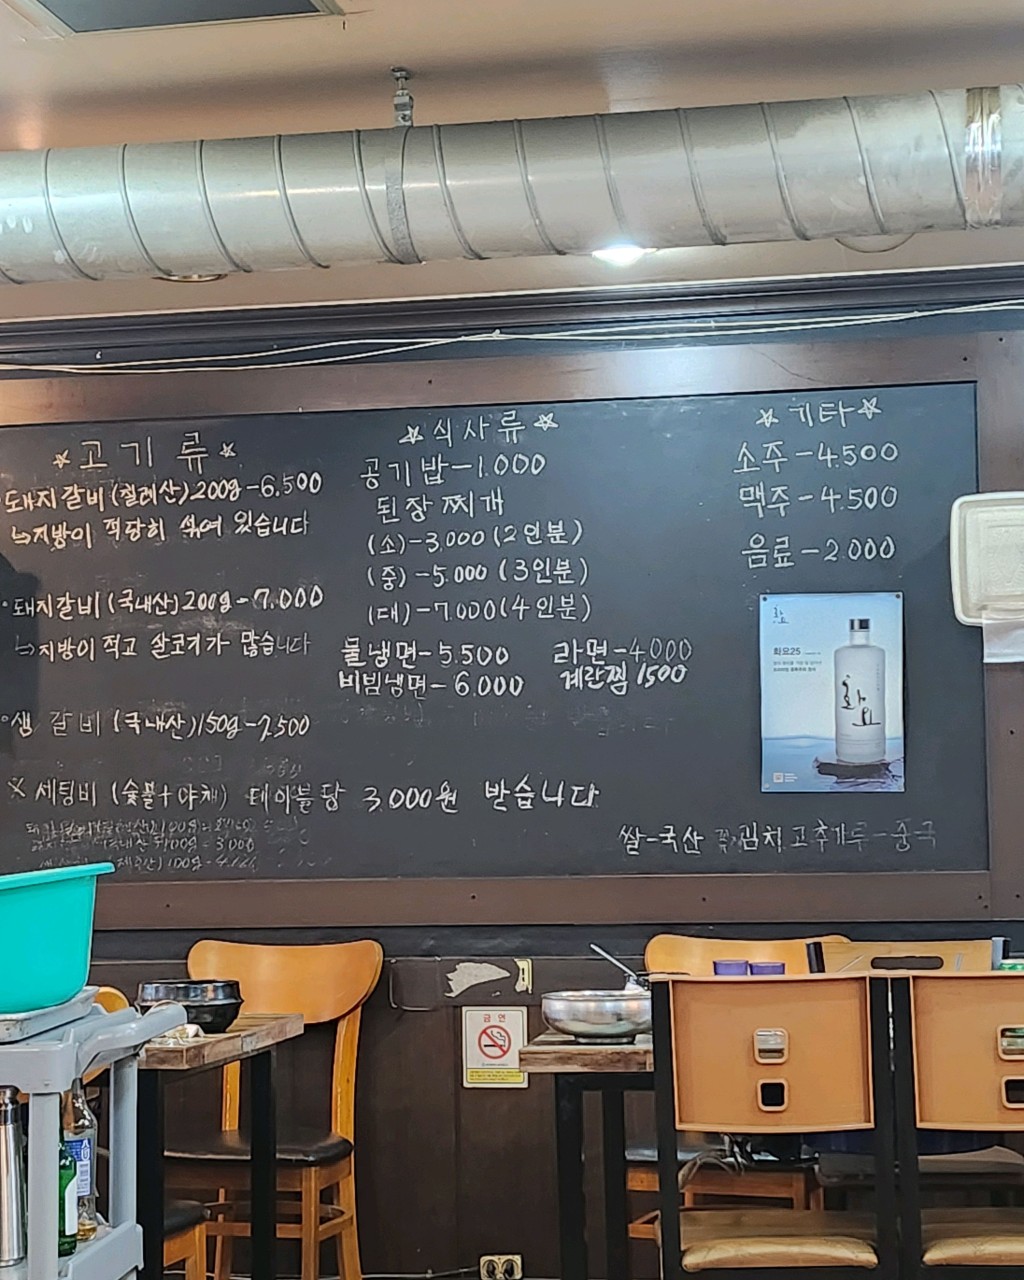 ☆고기류☆
돼지갈비(칠레산)200g-6.500
↳지방이 적당히 섞여 있습니다
돼지갈비(국내산)200g-7.000
↳지방이 적고 살코기가 많습니다
생 갈비(국내산)150g-7.500
※ 세팅비 (숯불+야채) 테이블당 3.000원 받습니다
☆식사류☆
공기밥-1.000
된장찌개
(소)-3.000(2인분)
(중)-5.000(3인분)
(대)-7.000(4인분)
물냉면-5.500 라면-4.000
비빔냉면-6.000 계란찜 1500
☆기타☆
소주-4.500
맥주-4.500
음료-2.000
화요
화요25
화요
쌀-국산 김치 고추가루-중국
금연